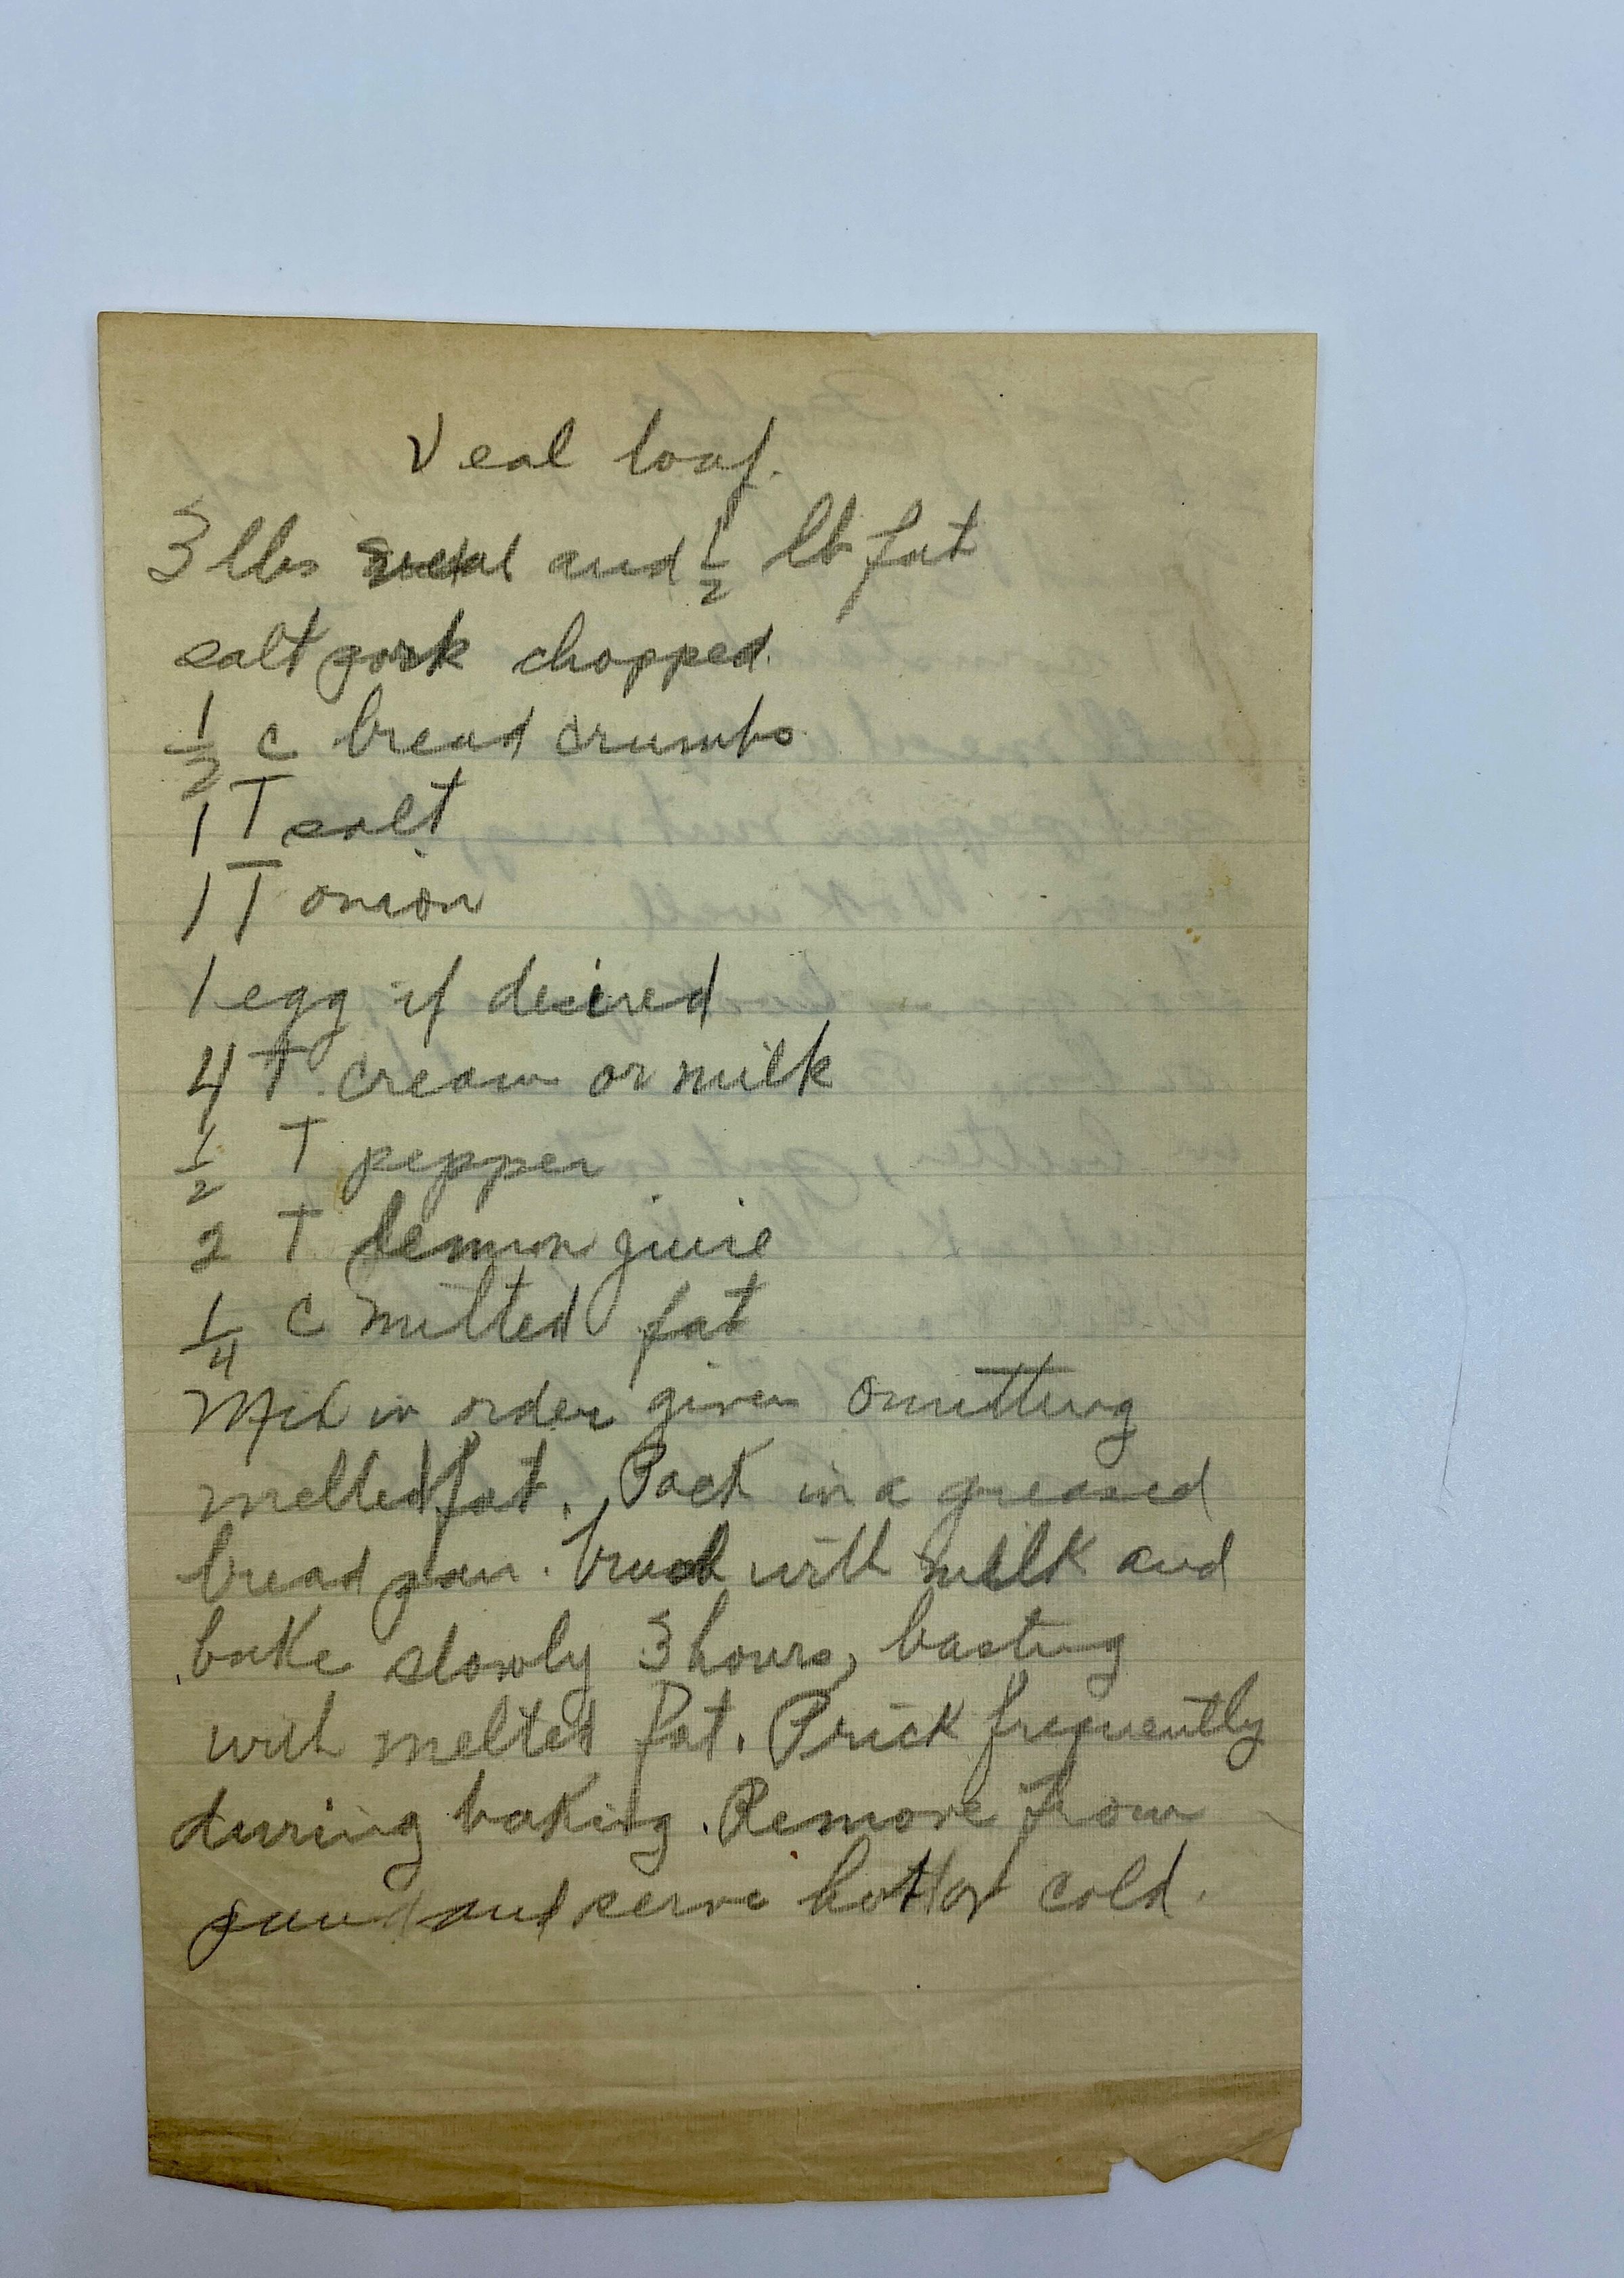 Veal loaf.
3 lbs veal and 1/2 lb fat
salt pork chopped.
1/2 c bread crumbs
1 T salt
1 T onion
1 egg if desired
4 T cream or milk
1/2 T pepper
2 T lemon juice
1/4 c melted fat
Mix in order given omitting
melted fat. Pack in a greased
bread pan. brush with milk and
bake slowly 3 hours, basting
with melted fat. Prick frequently
during baking. Remove from
pan and serve hot or cold.